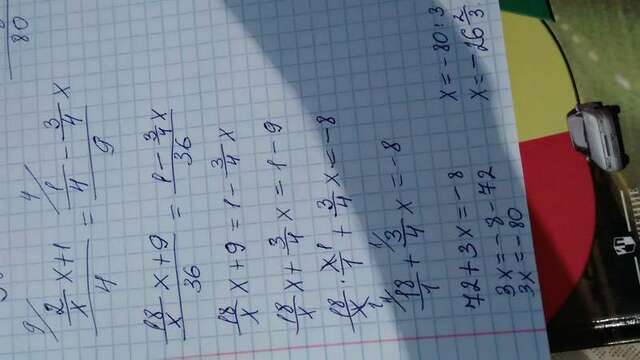 80
9/ (2/x x + 1)/4 = 4/ (1/4 - 3/4 x)/9
(18/x x + 9)/36 = (1 - 3/4 x)/36
18/x x + 9 = 1 - 3/4 x
18/x x + 3/4 x = 1 - 9
18/x · x/1 + 3/4 x = -8
4/ 18/1 + 1/ 3/4 x = -8
72 + 3x = -8
3x = -8 - 72
3x = -80
x = -80 : 3
x = -26 2/3